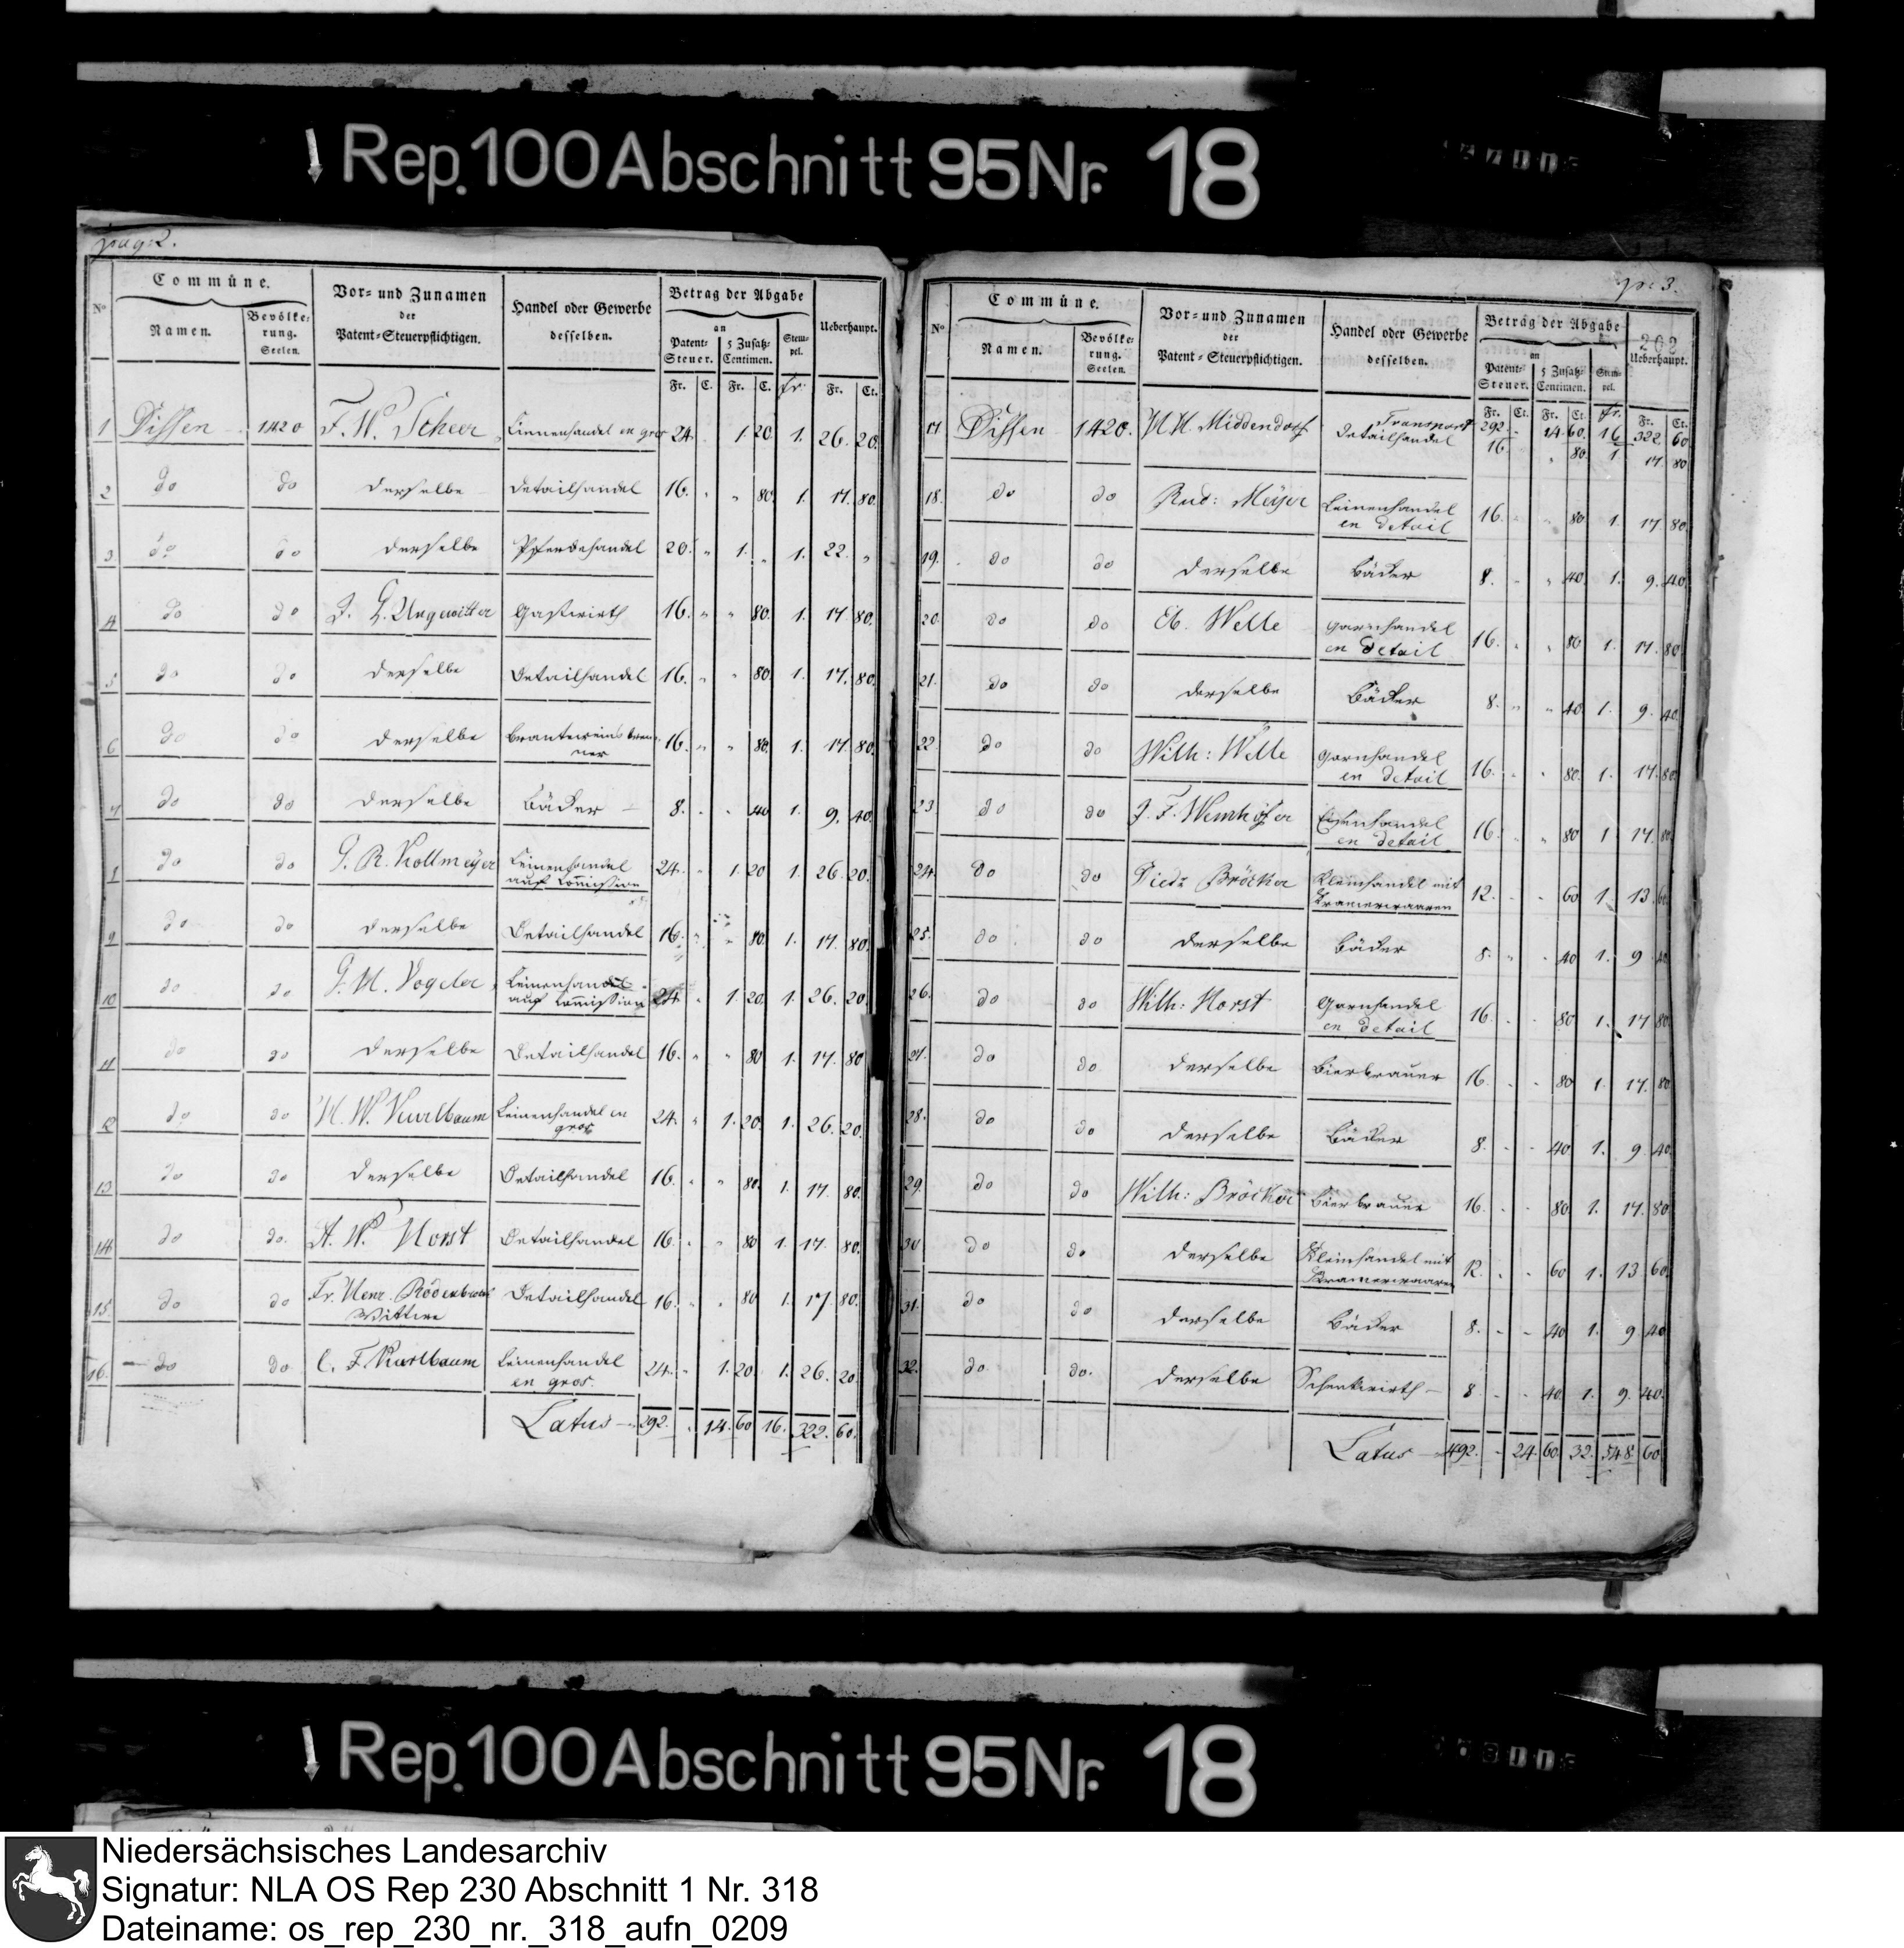 Rep. 100 Abschnitt 95 Nr. 18
pag: 2.
N° Commüne. Vor- und Zunamen der Patent-Steuerpflichtigen. Handel oder Gewerbe desselben. Betrag der Abgabe Ueberhaupt.
Namen. Bevölkerung. Seelen. an Patent-Steuer. 5 Zusatz-Centimen. Stempel.
Fr. C. Fr. C. fr. Fr. Ct.
1 Dissen 1420 F. W. Scheer Linnenhandel en gros 24. 1. 20 1. 26. 20.
2 do do derselbe Detailhandel 16. " " 80. 1. 17. 80.
3 do do derselbe Pferdehandel 20. " 1. " 1. 22. "
4 do do J. H. Ungewitter Gastwirth 16. " " 80. 1. 17. 80.
5 do do derselbe Detailhandel 16. " " 80. 1. 17. 80.
6 do do derselbe Branteweinsbren-
ner 16. " " 80. 1. 17. 80.
7 do do derselbe Bäcker 8. " " 40 1. 9. 40.
8 do do G. R. Kollmeyer Leinenhandel
auf Commission 24. " 1. 20 1. 26. 20.
9 do do derselbe Detailhandel 16. " " 80. 1. 17. 80.
10 do do G. H. Vogeler Leinenhandel
auf Commission 24. " 1. 20. 1. 26. 20.
11 do do derselbe Detailhandel 16. " " 80 1. 17. 80
12 do do H. W. Kurlbaum Leinenhandel en
gros 24. " 1. 20. 1. 26. 20.
13 do do derselbe Detailhandel 16. " " 80. 1. 17. 80.
14 do do. A. W. Horst Detailhandel 16. " " 80 1. 17. 80.
15 do do Fr. Henr. Wittwe Detailhandel 16. " " 80 1. 17. 80.
16. do do C. F. Kurlbaum Leinenhandel
en gros. 24. " 1. 20. 1. 26. 20.
Latus 292. " 14. 60 16. 322. 60.
p: 3.
202
N° Commüne. Vor- und Zunamen der Patent-Steuerpflichtigen. Handel oder Gewerbe desselben. Betrag der Abgabe Ueberhaupt.
Namen. Bevölkerung. Seelen. an Patent-Steuer. 5 Zusatz-Centimen. Stempel.
Fr. Ct. Fr. Ct. fr. Fr. Ct.
Transport 292. - 14. 60. 16 322. 60
17 Dissen 1420. H. H. Middendorf Detailhandel 16. " 80. 1. 17. 80
18. do do Rud: Meÿer Leinenhandel
en detail 16. - " 80. 1. 17. 80.
19. do do derselbe Bäcker 8. - " 40. 1. 9. 40.
20. do do Eb. Welle Garnhandel
en detail 16. " " 80 1. 17. 80
21. do do derselbe Bäcker 8. " " 40. 1. 9. 40.
22. do do Wilh: Welle Garnhandel
en detail 16. " " 80. 1. 17. 80.
23 do do J. F. Eisenhandel
en detail 16. " " 80 1 17. 80
24. do do Died: Bröcker Kleinhandel mit
Kramerwaaren 12. " " 60 1. 13. 60
25. do do derselbe Bäcker 8. " " 40 1. 9 40
26. do do Wilh: Horst Garnhandel
en detail 16. - - 80 1. 17 80
27. do do derselbe Bierbrauer 16. - - 80 1. 17. 80
28. do do derselbe Bäcker 8. - - 40 1. 9. 40.
29. do do Wilh: Bröcker Bierbrauer 16. - - 80. 1. 17. 80
30 do do derselbe Kleinhandel mit
Kramerwaaren 12. - - 60 1. 13 60.
31. do do derselbe Bäcker 8. - - 40 1. 9. 40
32. do. do. derselbe Schenkwirth 8 - - 40. 1. 9. 40.
Latus 492. - 24. 60. 32. 548. 60.
Rep. 100 Abschnitt 95 Nr. 18
Niedersächsisches Landesarchiv
Signatur: NLA OS Rep 230 Abschnitt 1 Nr. 318
Dateiname: os_rep_230_nr._318_aufn_0209